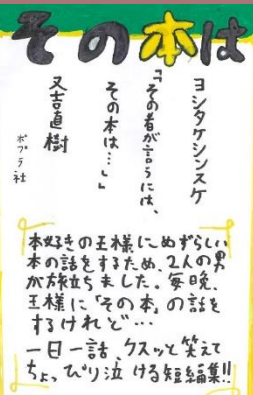 その本は
ヨシタケシンスケ
「その者が言うには、
その本は…」
又吉直樹
ポプラ社
本好きの王様にめずらしい
本の話をするため、2人の男
が旅立ちました。毎晩、
王様に「その本」の話を
するけれど…
一日一話、クスッと笑えて
ちょっぴり泣ける短編集!!